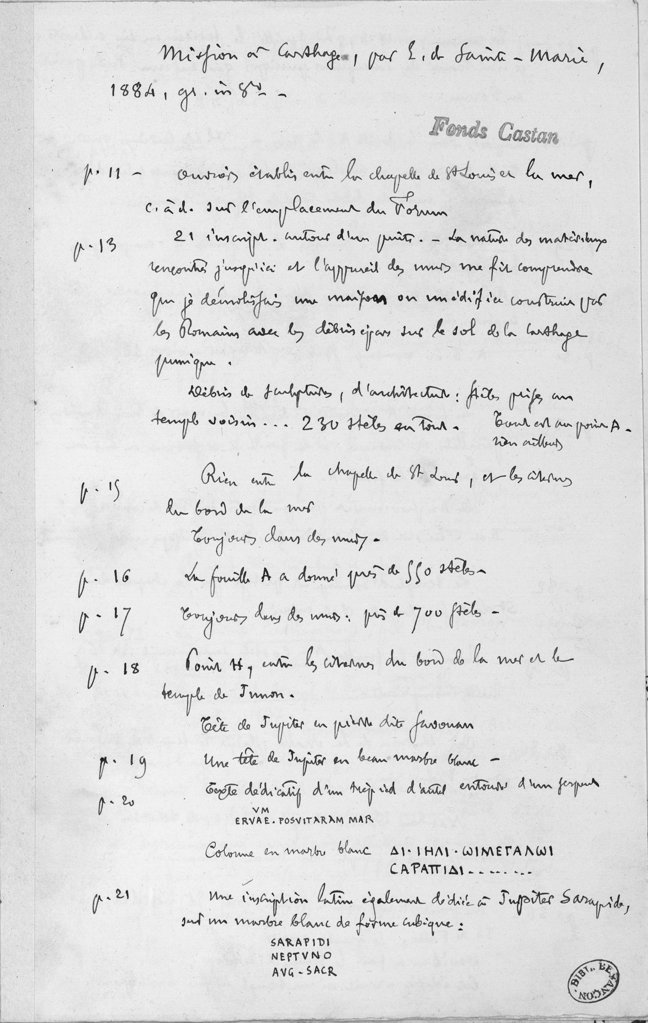 Mission à Carthage, par E. de Sainte-Marie,
1884, gr. in 8vo -
Fonds Castan
p. 11 - ouvriers établis entre la chapelle de St Louis et la mer,
c. à d. sur l'emplacement du Forum
p. 13 21 inscript. autour d'un puits. - La nature des matériaux
rencontrés jusqu'ici et l'appareil des murs me fit comprendre
que je démolissais une maison ou un édifice construit par
les Romains avec les débris épars sur le sol de la Carthage
punique.
Débris de sculptures, d'architecture : stèles prises au
temple voisin... 230 stèles en tout. Tout est au point A -
rien ailleurs
p. 15 Rien entre la chapelle de St Louis, et les citernes
du bord de la mer
Toujours dans des murs.
p. 16 La fouille A a donné près de 550 stèles -
p. 17 Toujours dans des murs : près de 700 stèles -
p. 18 Point H, entre les citernes du bord de la mer et le
temple de Junon.
Tête de Jupiter en pierre dite
p. 19 Une tête de Jupiter en beau marbre blanc -
p. 20 Texte dédicatif d'un trépied d'autel entouré d'un serpent
VM
ERVAE. POSVITARAM MAR
Colonne en marbre blanc ΔΙ·ΙΗΛΙ·ωΙΜΕΓΑΛωΙ
CΑΡΑΠΙΔΙ........
p. 21 Une inscription latine également dédiée à Jupiter Sarapide,
sur un marbre blanc de forme cubique :
SARAPIDI
NEPTVNO
AVG-SACR
BIBL. BESANÇON